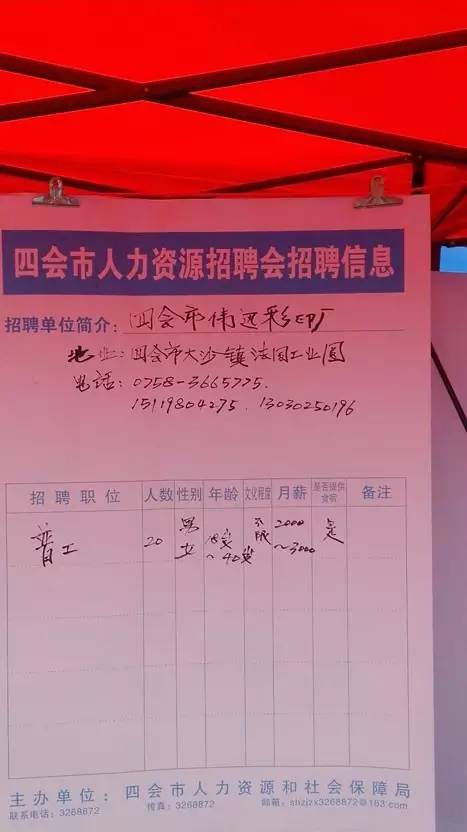 四会市人力资源招聘会招聘信息
招聘单位简介: 四会市伟远彩印厂
地址: 四会市大沙镇法国工业园
电话: 0758-3665775.
15119804275. 13030250196
招聘职位 人数 性别 年龄 文化程度 月薪 是否提供食宿 备注
普工 20 男女 18岁~40岁 不限 2000~3000 是
主办单位: 四会市人力资源和社会保障局
联系电话: 3268872 传真: 3268872 邮箱: shzjzx3268872@163.com